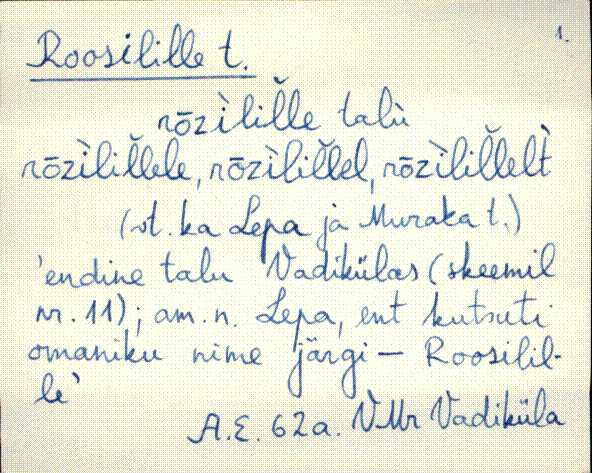 1.
Roosilille t.
rōzìlil̆l̆e talù
rōzìlil̆l̆ele, rōzìlil̆l̆el, rōzìlil̆l̆elt̀
(vt. ka Lepa ja Muraka t.)
'endine talu Vadikülas (skeemil
nr. 11); am. n. Lepa, ent kutsuti
omaniku nime järgi — Roosilil-
le'
A.E. 62a. VMr Vadiküla